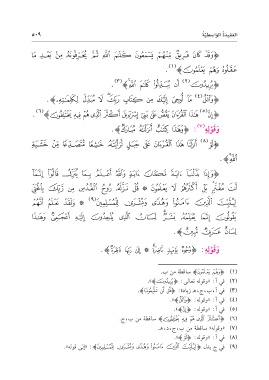 العقيدة الواسطية ٥٠٩
﴿وَقَدْ كَانَ فَرِيقٌ مِنْهُمْ يَسْمَعُونَ كَلَامَ اللَّهِ ثُمَّ يُحَرِّفُونَهُ مِنْ بَعْدِ مَا
عَقَلُوهُ وَهُمْ يَعْلَمُونَ﴾(١).
﴿يُرِيدُونَ(٢) أَنْ يُبَدِّلُوا كَلَامَ اللَّهِ﴾(٣).
﴿وَاتْلُ(٤) مَا أُوحِيَ إِلَيْكَ مِنْ كِتَابِ رَبِّكَ لَا مُبَدِّلَ لِكَلِمَاتِهِ﴾.
﴿إِنَّ(٥) هَذَا الْقُرْآنَ يَقُصُّ عَلَى بَنِي إِسْرَائِيلَ أَكْثَرَ الَّذِي هُمْ فِيهِ يَخْتَلِفُونَ﴾(٦).
وَقَوْلِهِ(٧): ﴿وَهَذَا كِتَابٌ أَنْزَلْنَاهُ مُبَارَكٌ﴾.
﴿لَوْ(٨) أَنْزَلْنَا هَذَا الْقُرْآنَ عَلَى جَبَلٍ لَرَأَيْتَهُ خَاشِعًا مُتَصَدِّعًا مِنْ خَشْيَةِ
اللَّهِ﴾.
﴿وَإِذَا بَدَّلْنَا آيَةً مَكَانَ آيَةٍ وَاللَّهُ أَعْلَمُ بِمَا يُنَزِّلُ قَالُوا إِنَّمَا
أَنْتَ مُفْتَرٍ بَلْ أَكْثَرُهُمْ لَا يَعْلَمُونَ * قُلْ نَزَّلَهُ رُوحُ الْقُدُسِ مِنْ رَبِّكَ بِالْحَقِّ
لِيُثَبِّتَ الَّذِينَ آمَنُوا وَهُدًى وَبُشْرَى لِلْمُسْلِمِينَ(٩) * وَلَقَدْ نَعْلَمُ أَنَّهُمْ
يَقُولُونَ إِنَّمَا يُعَلِّمُهُ بَشَرٌ لِسَانُ الَّذِي يُلْحِدُونَ إِلَيْهِ أَعْجَمِيٌّ وَهَذَا
لِسَانٌ عَرَبِيٌّ مُبِينٌ﴾.
وَقَوْلِهِ: ﴿وُجُوهٌ يَوْمَئِذٍ نَاضِرَةٌ * إِلَى رَبِّهَا نَاظِرَةٌ﴾.
(١) ﴿وهم يعلمون﴾ ساقطة من ب.
(٢) في أ: «وقوله تعالى: ﴿يريدون﴾».
(٣)
(٤) في أ: «وقوله: ﴿واتل﴾».
(٥) في أ: «وقوله: ﴿إن﴾».
(٦) ﴿أكثر الذي هم فيه يختلفون﴾ ساقطة من ب، ج.
(٧) «وقوله» ساقطة من ب، ج، د، هـ.
(٨) في أ: «وقوله: ﴿لو﴾».
(٩)